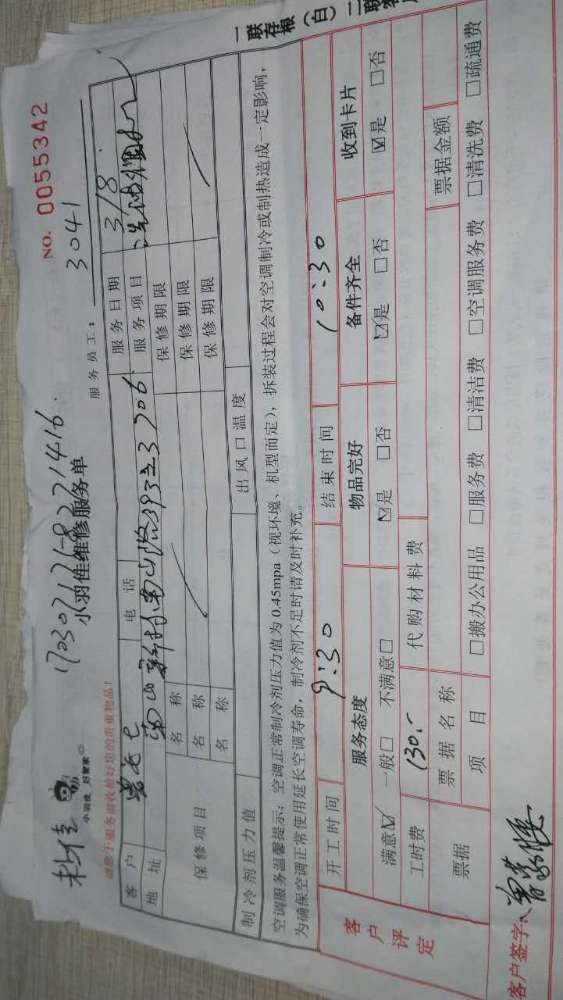 一联存根（白）二联
NO. 0055342
小羽佳 好管家
请您于服务前收拾好您的贵重物品！
小羽佳维修服务单
服务员工：3041
客户 电话 服务日期 3/8
地址 服务项目
保修项目 名称 保修期限
名称 保修期限
名称 保修期限
制冷剂压力值 出风口温度
空调服务温馨提示：空调正常制冷剂压力值为0.45mpa（视环境、机型而定），拆装过程会对空调制冷或制热造成一定影响，
为确保空调正常使用延长空调寿命，制冷剂不足时请及时补充。
客户评定
开工时间 9:30 结束时间 10:30
服务态度 物品完好 备件齐全 收到卡片
满意☑ 一般□ 不满意□ ☑是 □否 ☑是 □否 ☑是 □否
工时费 130.- 代购材料费
票据 票据名称 票据金额
项目 □搬办公用品 □服务费 □清洁费 □空调服务费 □清洗费 □疏通费
客户签字：